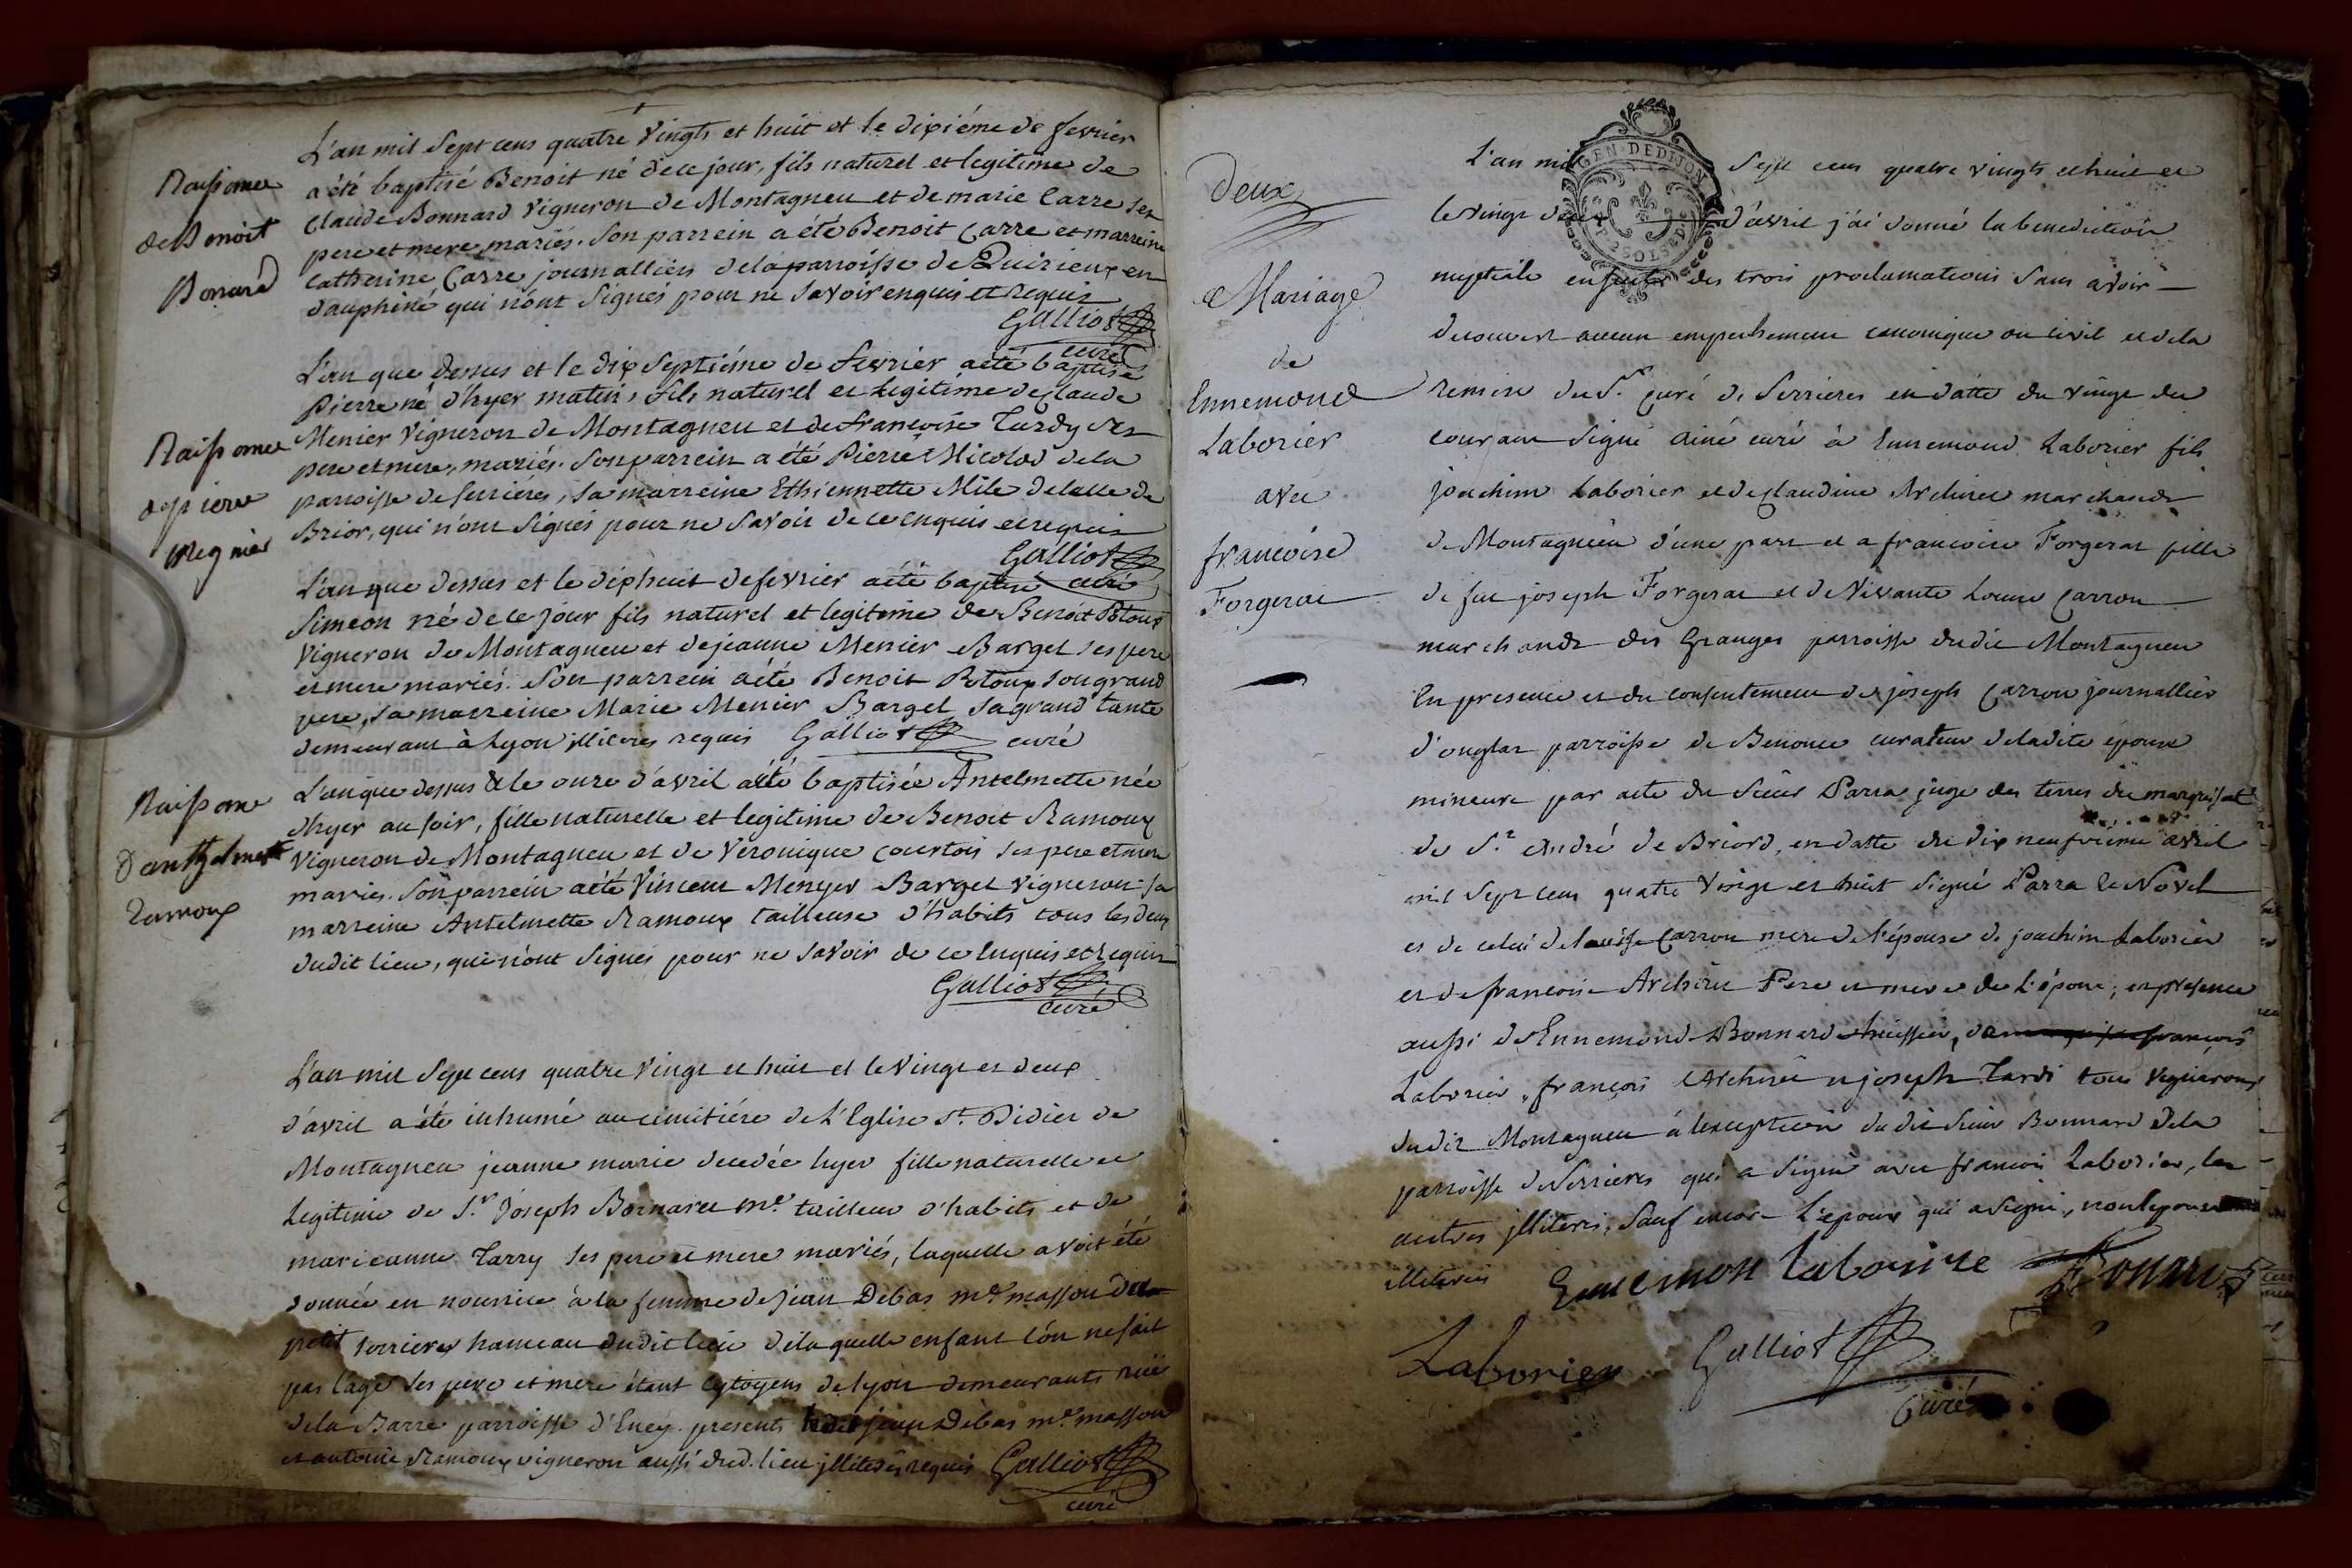 L'an mil Sept cens quatre Vingts et huit et le dixiéme de fevrier
a été baptisé Benoit né de ce jour, fils naturel et legitime de
Claude Bonnard Vigneron de Montagneu et de marie Carre ses
pere et mere mariés. Son parrein a été Benoit Carre et marreine
Catherine Carre journalliers de la parroisse de Quirieux en
dauphiné qui n'ont Signés pour ne Savoir enquis et requis
Galliot
curé
Naissance
de Benoit
Bonard
L'an que dessus et le dix Septiéme de fevrier a été baptisé
Pierre né d'hyer matin, fils naturel et Legitime de Claude
Menier Vigneron de Montagneu et de francoise Tardy ses
pere et mere, mariés. Son parrein a été Pierre Micolod de la
parroisse de Serriéres, Sa marreine Ethiennette Mile de celle de
Brior, qui n'ont Signés pour ne Savoir de ce enquis et requis
Galliot
curé
Naissance
de piere
megnier
L'an que dessus et le dixhuit de fevrier a été baptisé
Simeon né de ce jour fils naturel et legitime de Benoit
Vigneron de Montagneu et de jeanne Menier Barget ses pere
et mere mariés. Son parrein a été Benoit son grand
pere, sa marreine Marie Menier Barget sa grand tante
demeurant à Lyon jlliteres requis Galliot curé
L'an que dessus & le onze d'avril a été baptisée Antelmette née
d'hyer au soir, fille naturelle et legitime de Benoit Ramoux
Vigneron de Montagneu et de Veronique Courtois ses pere et mere
mariés. Son parrein a été Vincent Menyer Barget vigneron sa
marreine Antelmette Ramoux tailleuse d'habits tous les deux
dudit lieu, qui n'ont signés pour ne savoir de ce Enquis et requis
Galliot
curé
Naissance
d'anthelmette
ramoux
L'an mil Sept cens quatre Vingt et huit et le Vingt et deux
d'avril a été inhumé au cimitiére de L'Eglise St. Didier de
Montagneu jeanne marie decedée hyer fille naturelle et
Legitime de S.r Joseph me. tailleur d'habits et de
marieanne Tarry ses pere et mere mariés, laquelle avoit été
donnée en nourrice à la femme de jean Debas me. masson
petit Serrieres hameau dudit lieu de laquelle enfant l'on ne sait
pas l'age ses pere et mere étant cytoyens de lyon demeurants rüe
de la Barre parroisse d'Eney. presents ledit jean Debas me. masson
et antoine Ramoux vigneron aussi dud. lieu jlliteres requis Galliot
curé
GEN. DE DIJON
Deux
Mariage
de
Ennemond
Laborier
avec
francoise
Forgerat
L'an mil Sept cens quatre vingts et huit et
le vingt deux d'avril j'ai donné la benediction
nuptiale ensuite des trois proclamations Sans avoir
decouvert aucun empechement canonique ou civil et de la
remise du S.r Curé de Serrieres en datte du vingt du
courant signé Ainé curé à Ennemond Laborier fils
joachim Laborier et de Claudine marchands
de Montagneu d'une part et a francoise Forgerat fille
de feu joseph Forgerat et de Vivante Louise Carron
marchands des Granges parroisse dudit Montagneu
En presence et du consentement de joseph Carron journallier
d'onglas parroisse de Benonce curateur de ladite épouse
mineure par acte du Sieur Parra juge des terres du marquisat
de St. André de Briord, en datte du dix neufvieme avril
mil Sept cens quatre Vingt et huit signé Parra le Novel
et de celui de Carron mere de l'épouse de joachim Laborier
et de francoise Pere et mere de L'époux; en presence
aussi d'Ennemond Bonnard huissier, françois
Laborier, françois et joseph Tardi tous Vignerons
dudit Montagneu à l'exception dudit Sieur Bonnard de la
parroisse de Serrieres qui a signé avec francois Laborier, les
autres jlliterés, Sauf encore L'epoux qui a signé, non l'epouse
illiterés Ennemon laborire Bonnard
Laborier Galliot
Curé